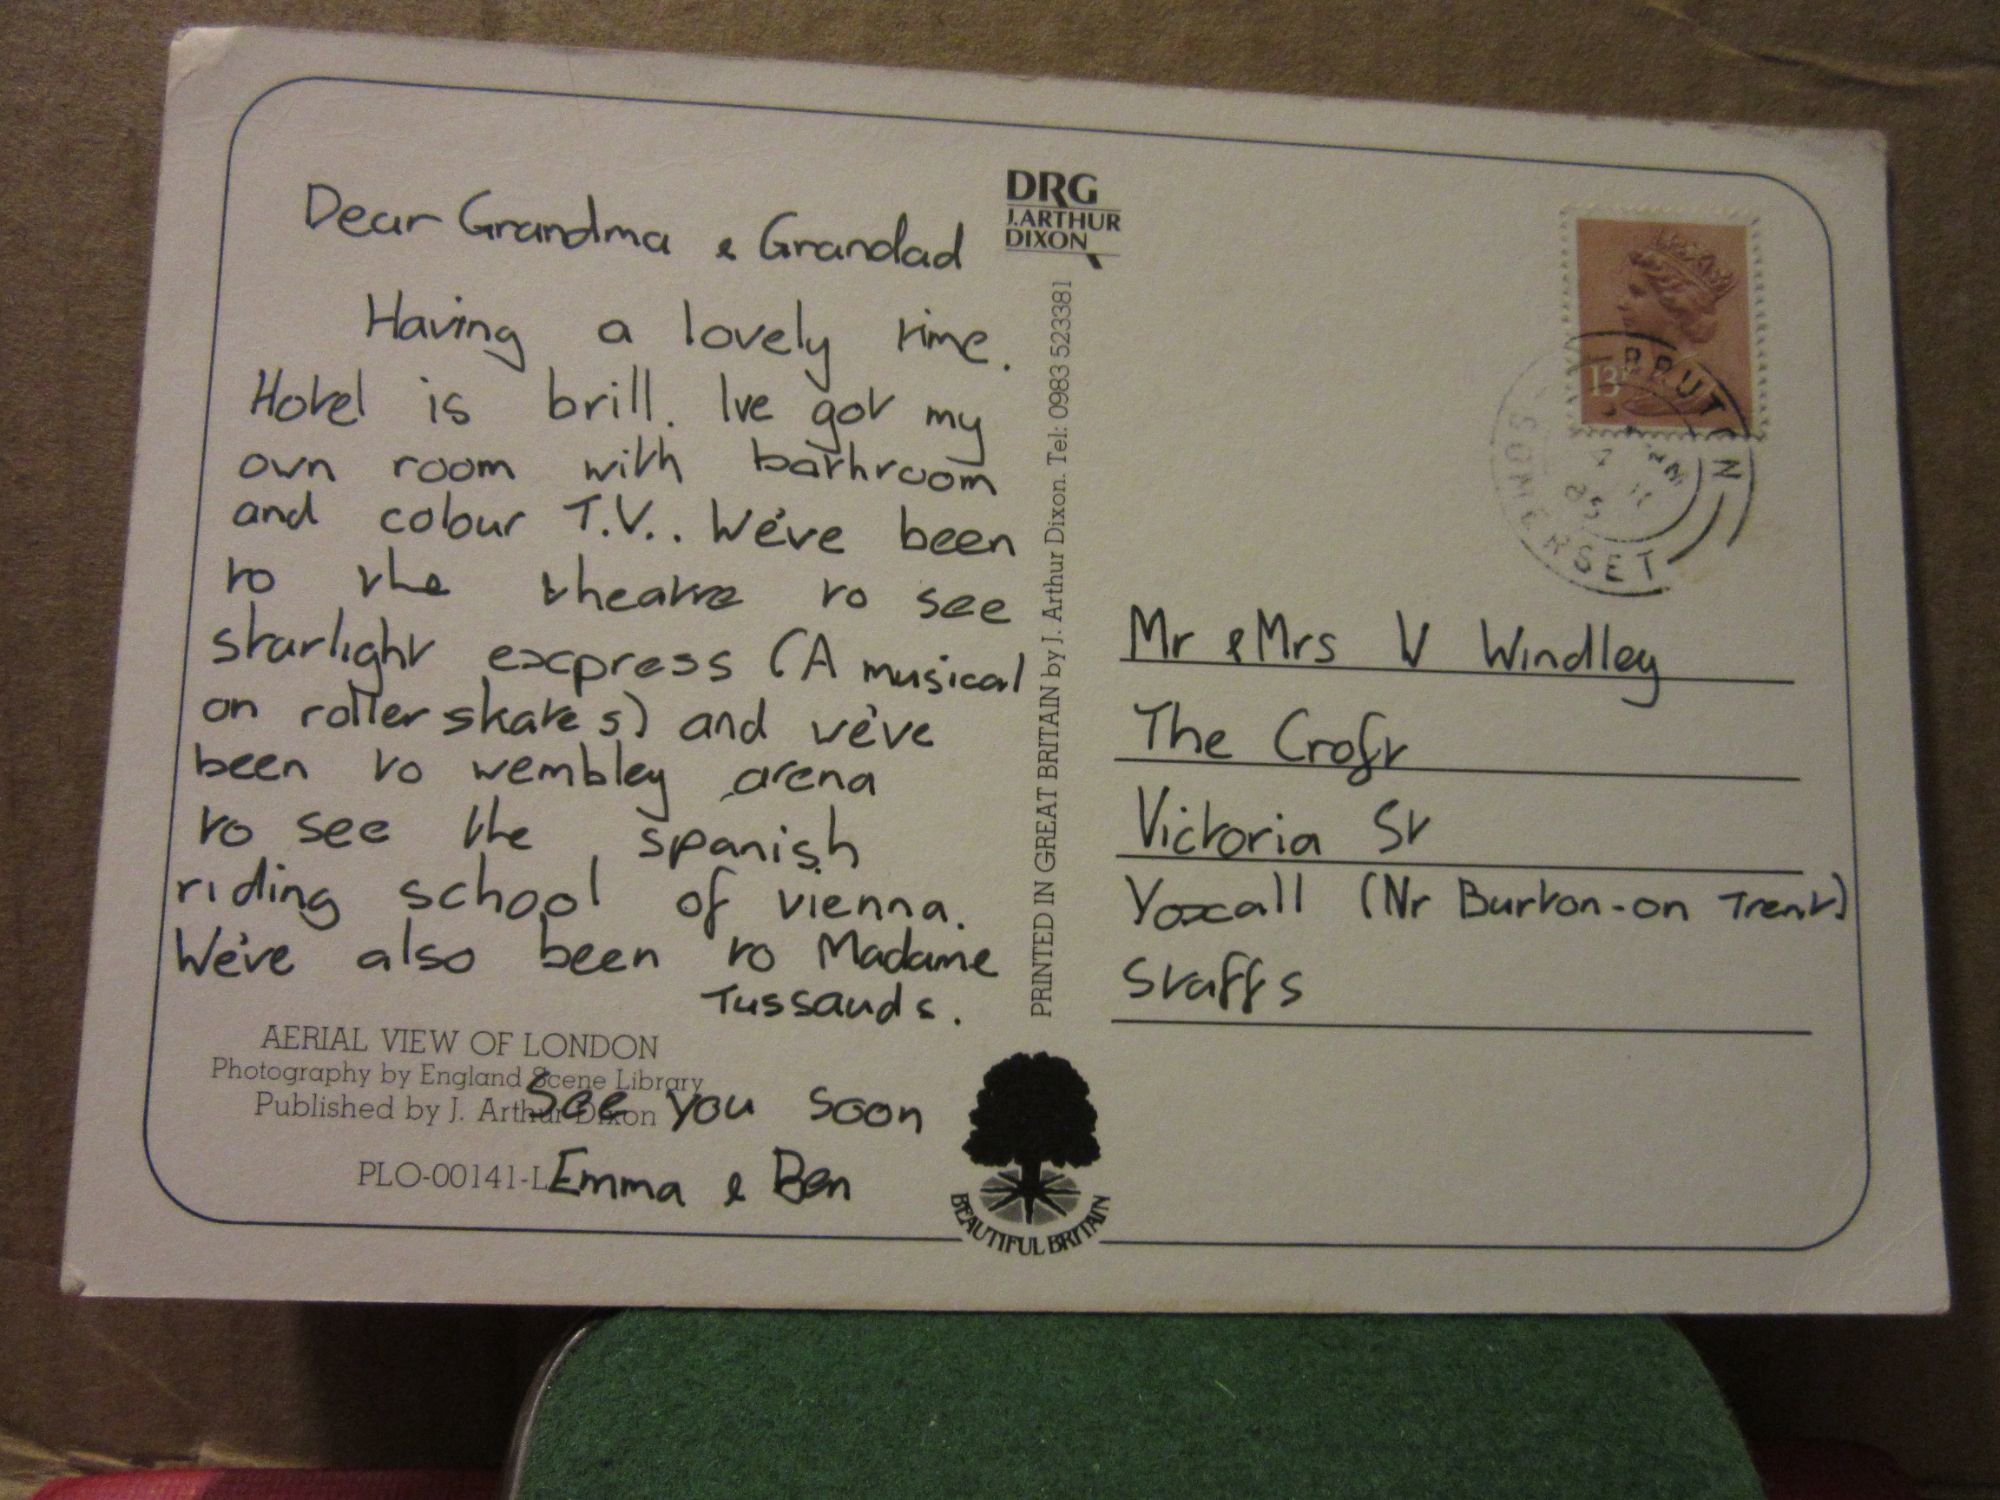 Dear Grandma & Grandad
Having a lovely time.
Hotel is brill. Ive got my
own room with bathroom
and colour T.V.. We've been
to the theatre to see
starlight express (A musical
on roller skates) and we've
been to wembley arena
to see the spanish
riding school of vienna.
We've also been to Madame
Tussauds.
See you soon
Emma & Ben
AERIAL VIEW OF LONDON
Photography by England Scene Library
Published by J. Arthur Dixon
PLO-00141-L
DRG
J.ARTHUR
DIXON
PRINTED IN GREAT BRITAIN by J. Arthur Dixon. Tel: 0983 523381
BEAUTIFUL BRITAIN
13
BRUTON
SOMERSET
85
Mr & Mrs W Windley
The Croft
Victoria St
Yoxall (Nr Burton-on Trent)
Staffs